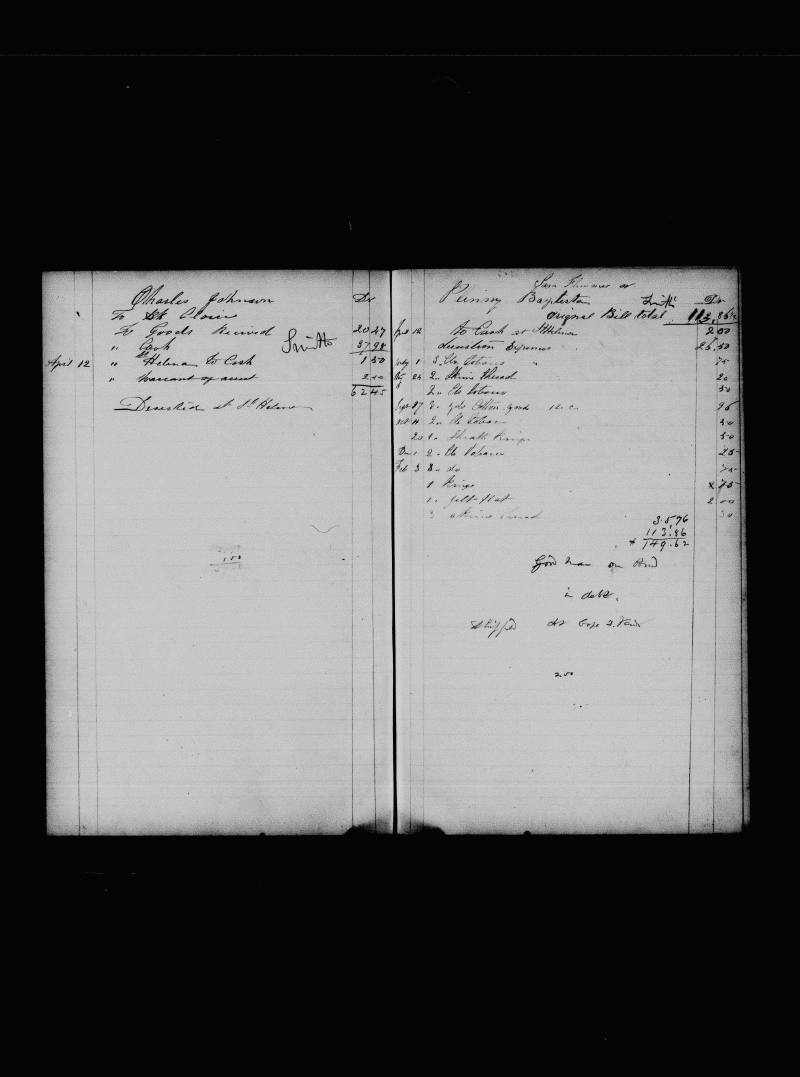 Charles Johnson Dr
To
To Goods Received 20 27
" Cash Smith 37 98
April 12 " St Helena To Cash 1 50
" warrant of arrest 2 50
62 45
Deserted at St Helena
100
Sam or
Baptista Smith Dr
Original Bill total 113.86
April 12 To Cash at St Helena 2 00
Expenses 26.50
1 3 lbs Tobacco 75
24 2 Skeins Thread 20
2 lbs Tobacco 50
Sept 27 8 yds Cotton goods 12 c 96
Oct 11 2 lbs Tobacco 50
20 1 Sheath Knife 50
Dec 1 2 lbs Tobacco 25
Feb 3 3 do 75
1 Knife 75
1 felt Hat 2 00
3 Skeins Thread 30
35.76
113.86
149.62
Good man on and
in debt.
Shipped at Cape
200